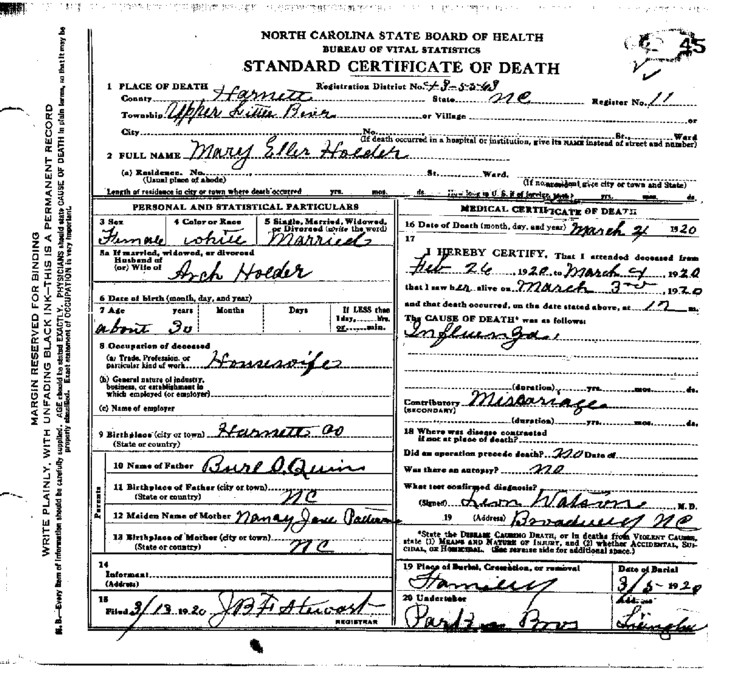 NORTH CAROLINA STATE BOARD OF HEALTH
BUREAU OF VITAL STATISTICS
STANDARD CERTIFICATE OF DEATH
45
1 PLACE OF DEATH Registration District No.
County Harnett State NC Register No. 11
Township Upper Little River or Village or
City No. St. Ward
(If death occurred in a hospital or institution, give its NAME instead of street and number)
2 FULL NAME Mary Eller Holder
(a) Residence. No. St. Ward.
(Usual place of abode) (If nonresident give city or town and State)
Length of residence in city or town where death occurred yrs. mos. ds. How long in U. S. if of foreign birth? yrs. mos. ds.
PERSONAL AND STATISTICAL PARTICULARS
3 Sex 4 Color or Race 5 Single, Married, Widowed,
or Divorced (write the word)
Female white Married
5a If married, widowed, or divorced
Husband of
(or) Wife of Arch Holder
6 Date of birth (month, day, and year)
7 Age years Months Days If LESS than
1 day, hrs.
or min.
about 30
8 Occupation of deceased
(a) Trade, Profession, or
particular kind of work Housewife
(b) General nature of industry,
business, or establishment in
which employed (or employer)
(c) Name of employer
9 Birthplace (city or town) Harnett Co
(State or country)
Parents
10 Name of Father
11 Birthplace of Father (city or town)
(State or country) NC
12 Maiden Name of Mother Nancy Jane
13 Birthplace of Mother (city or town)
(State or country) NC
14
Informant
(Address)
15
Filed 3/13 1920 Stewart
REGISTRAR
MEDICAL CERTIFICATE OF DEATH
16 Date of Death (month, day, and year) March 1920
17
I HEREBY CERTIFY, That I attended deceased from
Feb 26, 1920, to March 1920
that I saw her alive on March 3rd, 1920
and that death occurred, on the date stated above, at 12 m.
The CAUSE OF DEATH* was as follows:
Influenza
(duration) yrs. mos. ds.
Contributory Miscarriage
(SECONDARY)
(duration) yrs. mos. ds.
18 Where was disease contracted
if not at place of death?
Did an operation precede death? no Date of
Was there an autopsy? no
What test confirmed diagnosis?
(Signed) Watson M. D.
19 (Address) Broadway NC
*State the DISEASE CAUSING DEATH, or in deaths from VIOLENT CAUSES,
state (1) MEANS AND NATURE OF INJURY, and (2) whether ACCIDENTAL, SUI-
CIDAL, OR HOMICIDAL. (See reverse side for additional space.)
19 Place of Burial, Cremation, or removal Date of Burial
3/5-1920
20 Undertaker Address
Bros
MARGIN RESERVED FOR BINDING
WRITE PLAINLY, WITH UNFADING BLACK INK—THIS IS A PERMANENT RECORD
N. B.—Every item of information should be carefully supplied. AGE should be stated EXACTLY. PHYSICIANS should state CAUSE OF DEATH in plain terms, so that it may be
properly classified. Exact statement of OCCUPATION is very important.